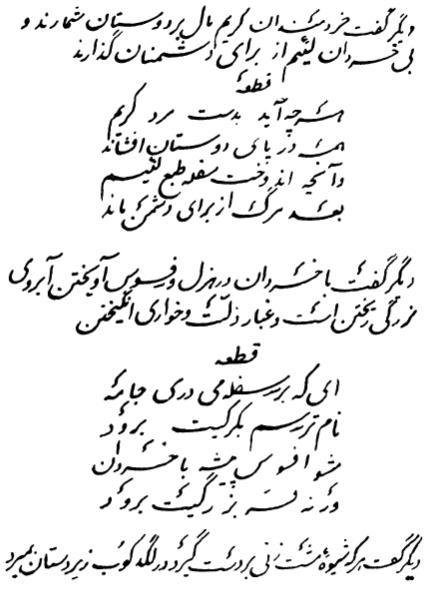 دیگر گفت خردمندان کریم مال بر دوستان شمارند و
بی خردان لئیم از برای دشمنان گذارند
قطعه
هر چه آید بدست مرد کریم
همه در پای دوستان افشاند
وآنچه اندوخت سفله طبع لئیم
بعد مرگ از برای دشمن ماند
دیگر گفت با خردان در هزل و فسوس آویختن آبروی
بزرگی ریختن است و غبار ذلت و خواری انگیختن
قطعه
ای که بر سفله می دری جامه
نام ترسم بگرگیت برود
مشو افسوس پیشه با خردان
ورنه فر بزرگیت برود
دیگر گفت هر که شیوهٔ مشت زنی بر دست گیرد در لگد کوب زیردستان بمیرد